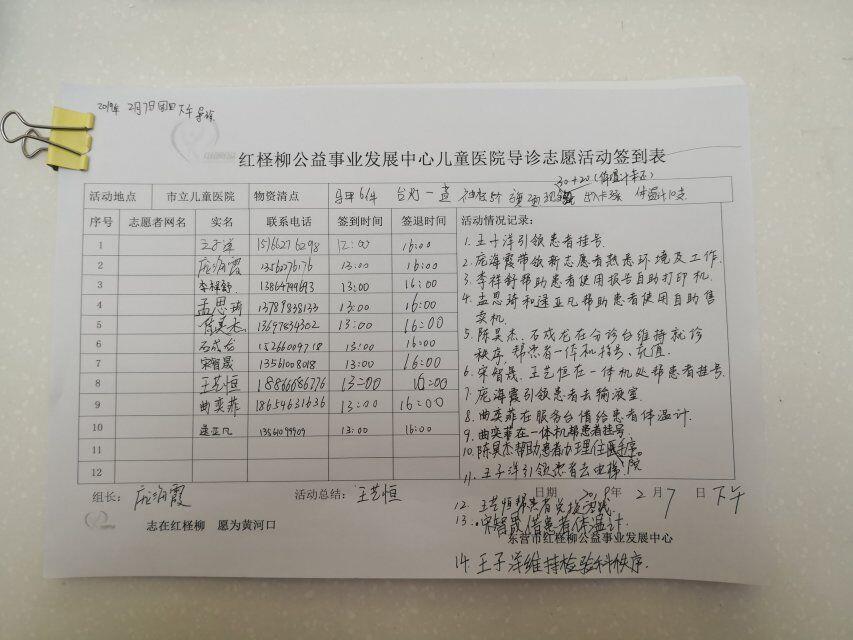 2019年 2月7日周四下午 导诊
红柽柳公益事业发展中心儿童医院导诊志愿活动签到表
30+20(体温计未还)
活动地点 市立儿童医院 物资清点 马甲6件 台灯一盏 体温计10支
序号 志愿者网名 实名 联系电话 签到时间 签退时间 活动情况记录:
1 王子洋 15166276298 12:00 16:00
2 庞海霞 1356276176 13:00 16:00
3 李祥舒 13864799693 13:00 16:00
4 孟思琦 13789838133 13:00 16:00
5 陈昊杰 13697834302 13:00 16:00
6 石成龙 15266009718 13:00 16:00
7 宋智晟 13561008018 13:00 16:00
8 王艺恒 18866686776 13:00 16:00
9 曲奕菲 18654631636 13:00 16:00
10 逯亚凡 13561099909 13:00 16:00
11
12
1. 王子洋引领患者挂号.
2. 庞海霞带领新志愿者熟悉环境及工作.
3. 李祥舒帮助患者使用报告自助打印机.
4. 孟思琦和逯亚凡帮助患者使用自助售
卖机.
5. 陈昊杰、石成龙在分诊台维持就诊
秩序,帮患者一体机挂号、充值.
6. 宋智晟、王艺恒在一体机处帮患者挂号.
7. 庞海霞引领患者去输液室.
8. 曲奕菲在服务台借给患者体温计.
9. 曲奕菲在一体机帮患者挂号.
10. 陈昊杰帮助患者办理住院手序.
11. 王子洋引领患者去电梯.
组长: 庞海霞 活动总结: 王艺恒 日期 2019年 2月 7日 下午
12. 王艺恒帮患者兑换零钱
13. 宋智晟借患者体温计.
志在红柽柳 愿为黄河口
东营市红柽柳公益事业发展中心
14. 王子洋维持检验科秩序.